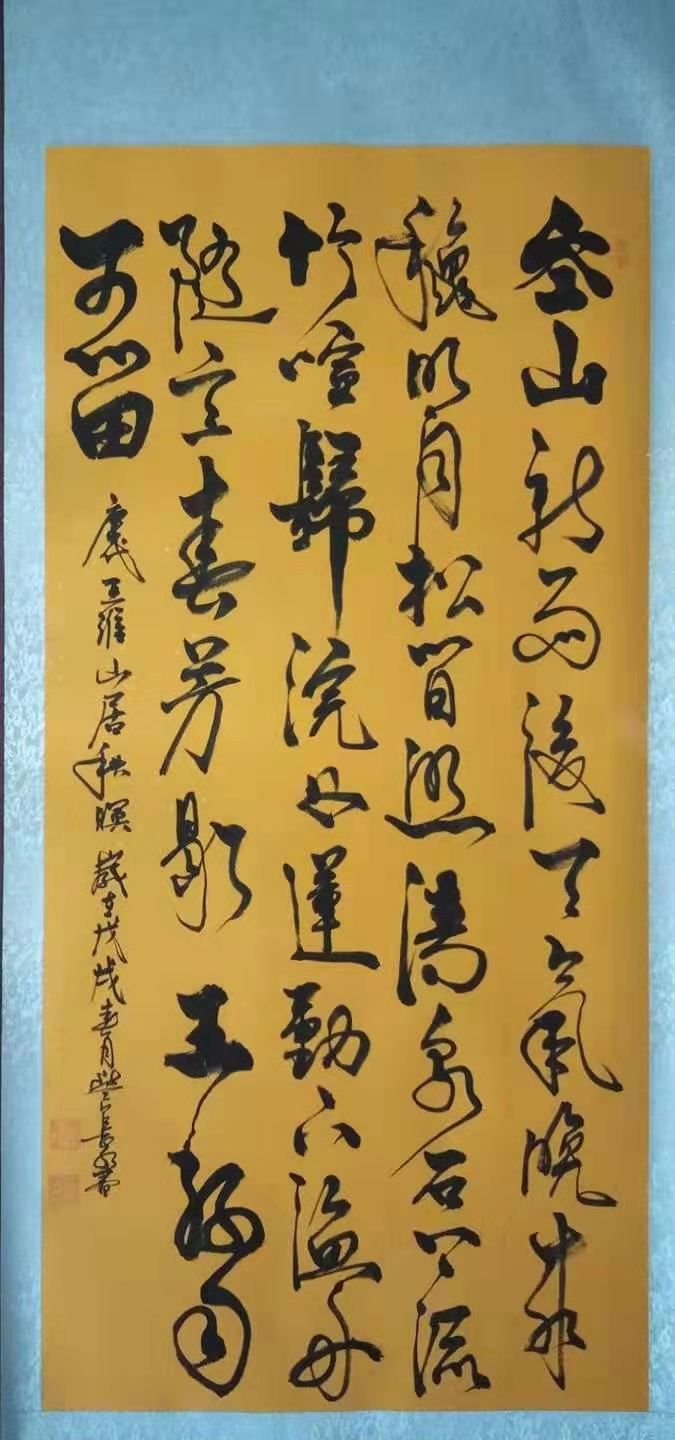 空山新雨後天氣晚來
穐明月松間照清泉石上流
竹喧歸浣女蓮動下漁舟
隨意春芳歇王孫自
可留
唐王維山居秋暝歲在戊戌春月書